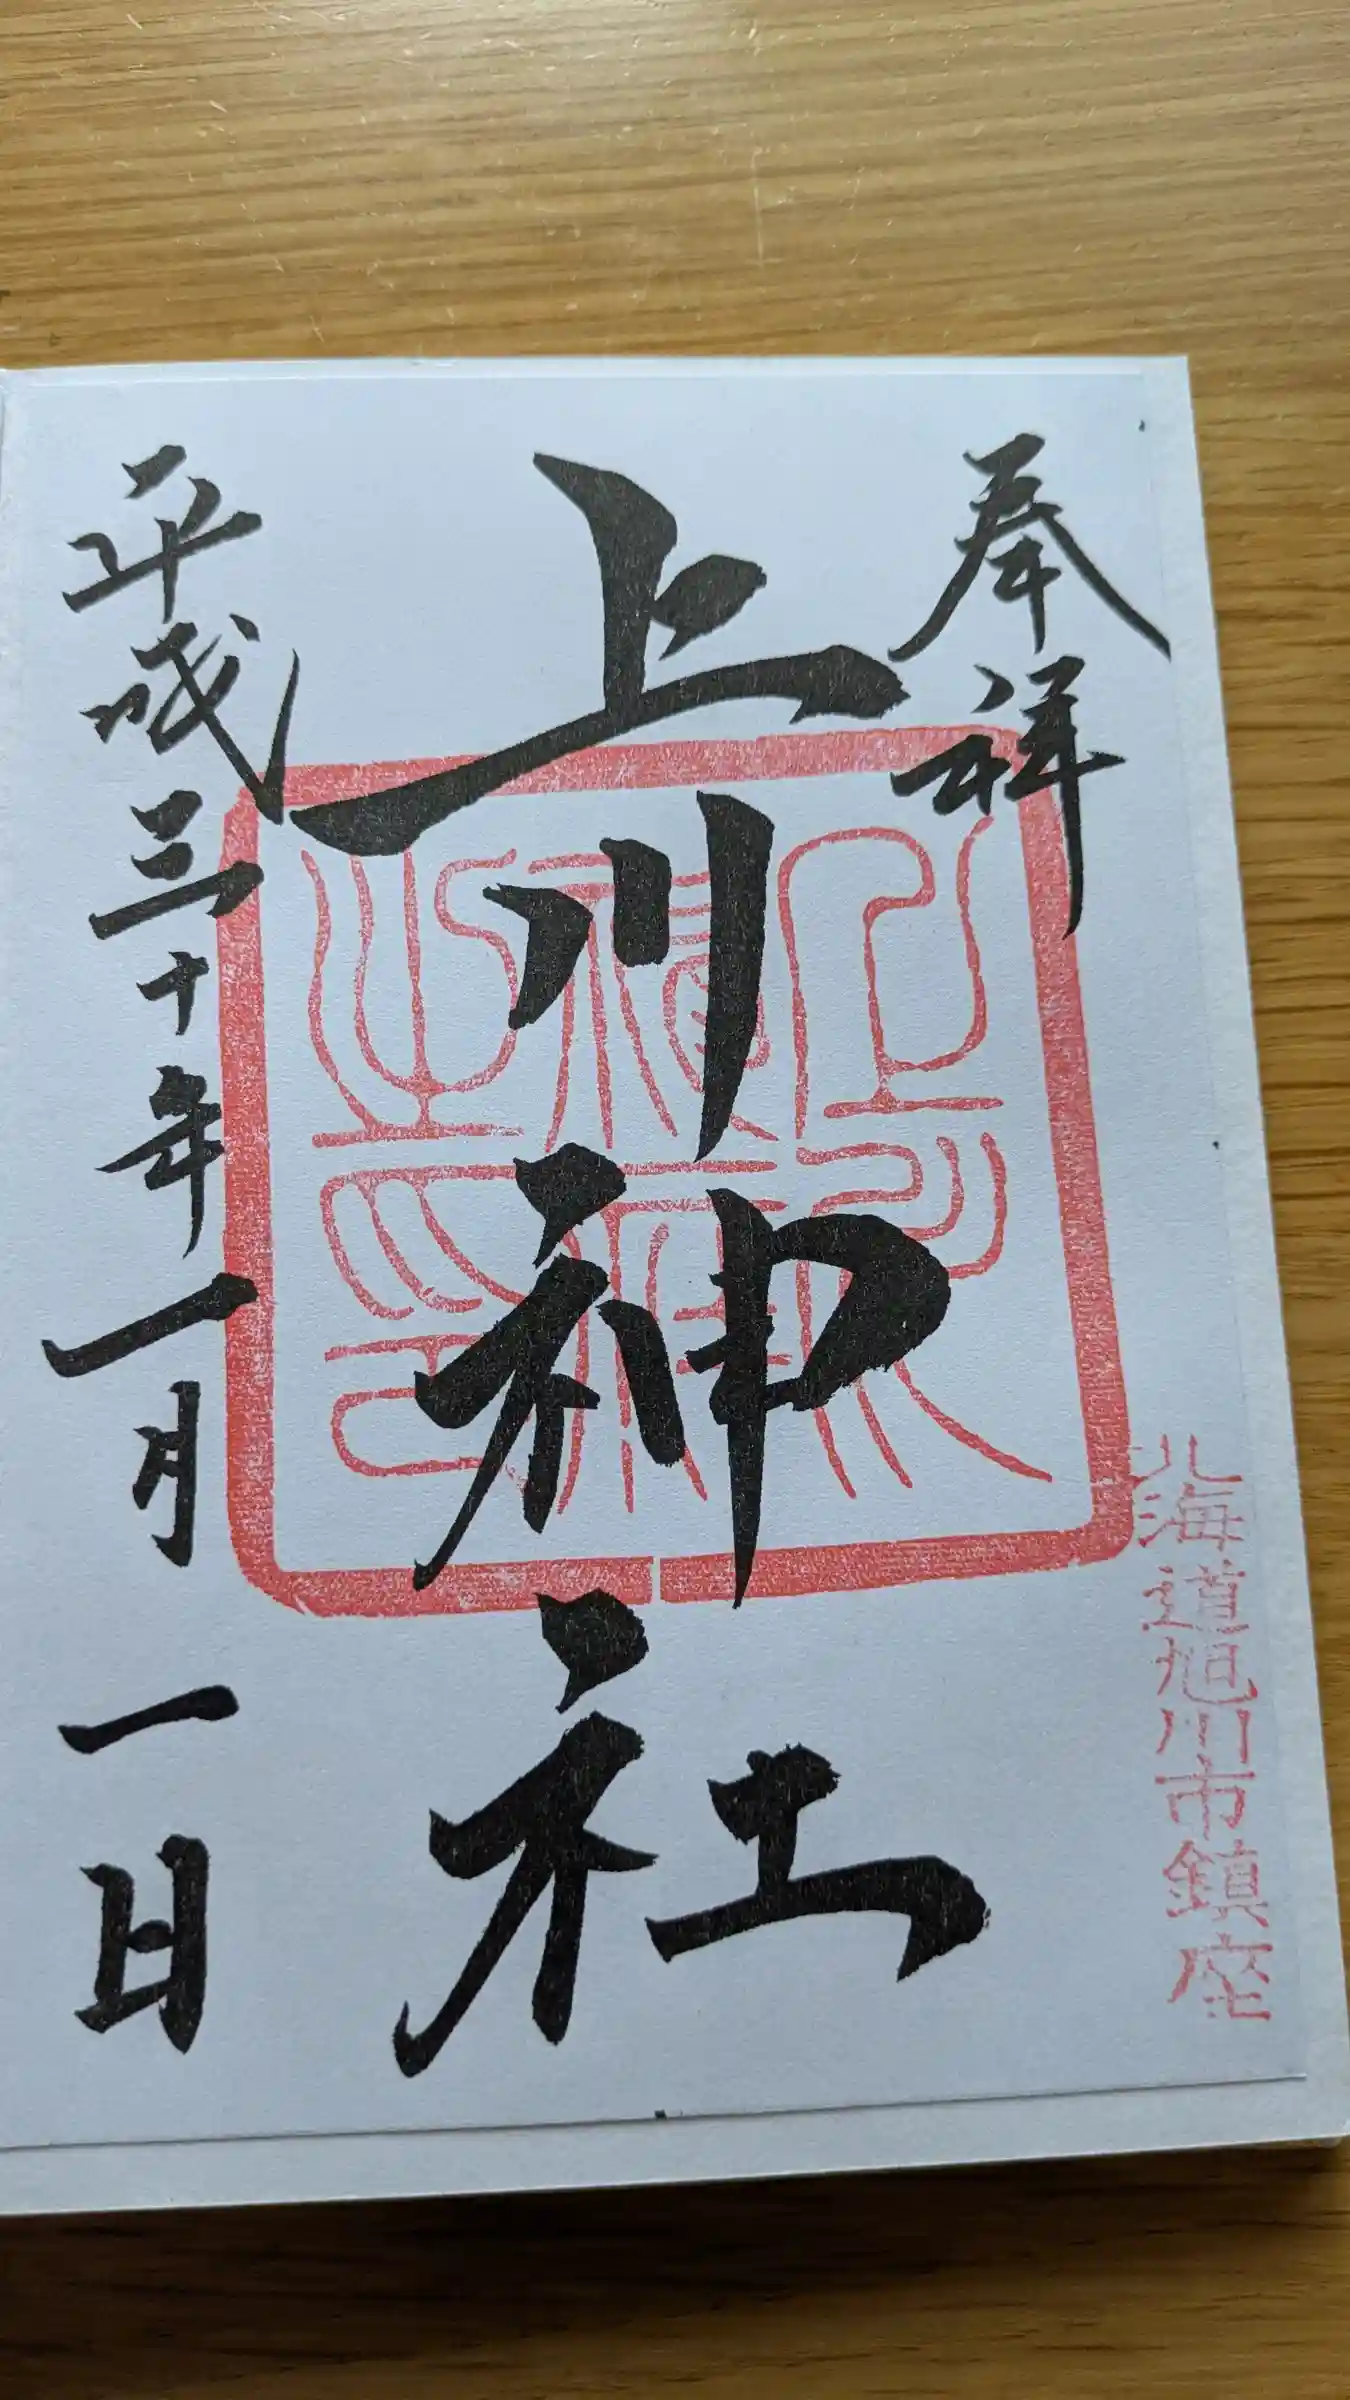 奉拝
北海道旭川市鎮座
上川神社
平成三十年一月一日